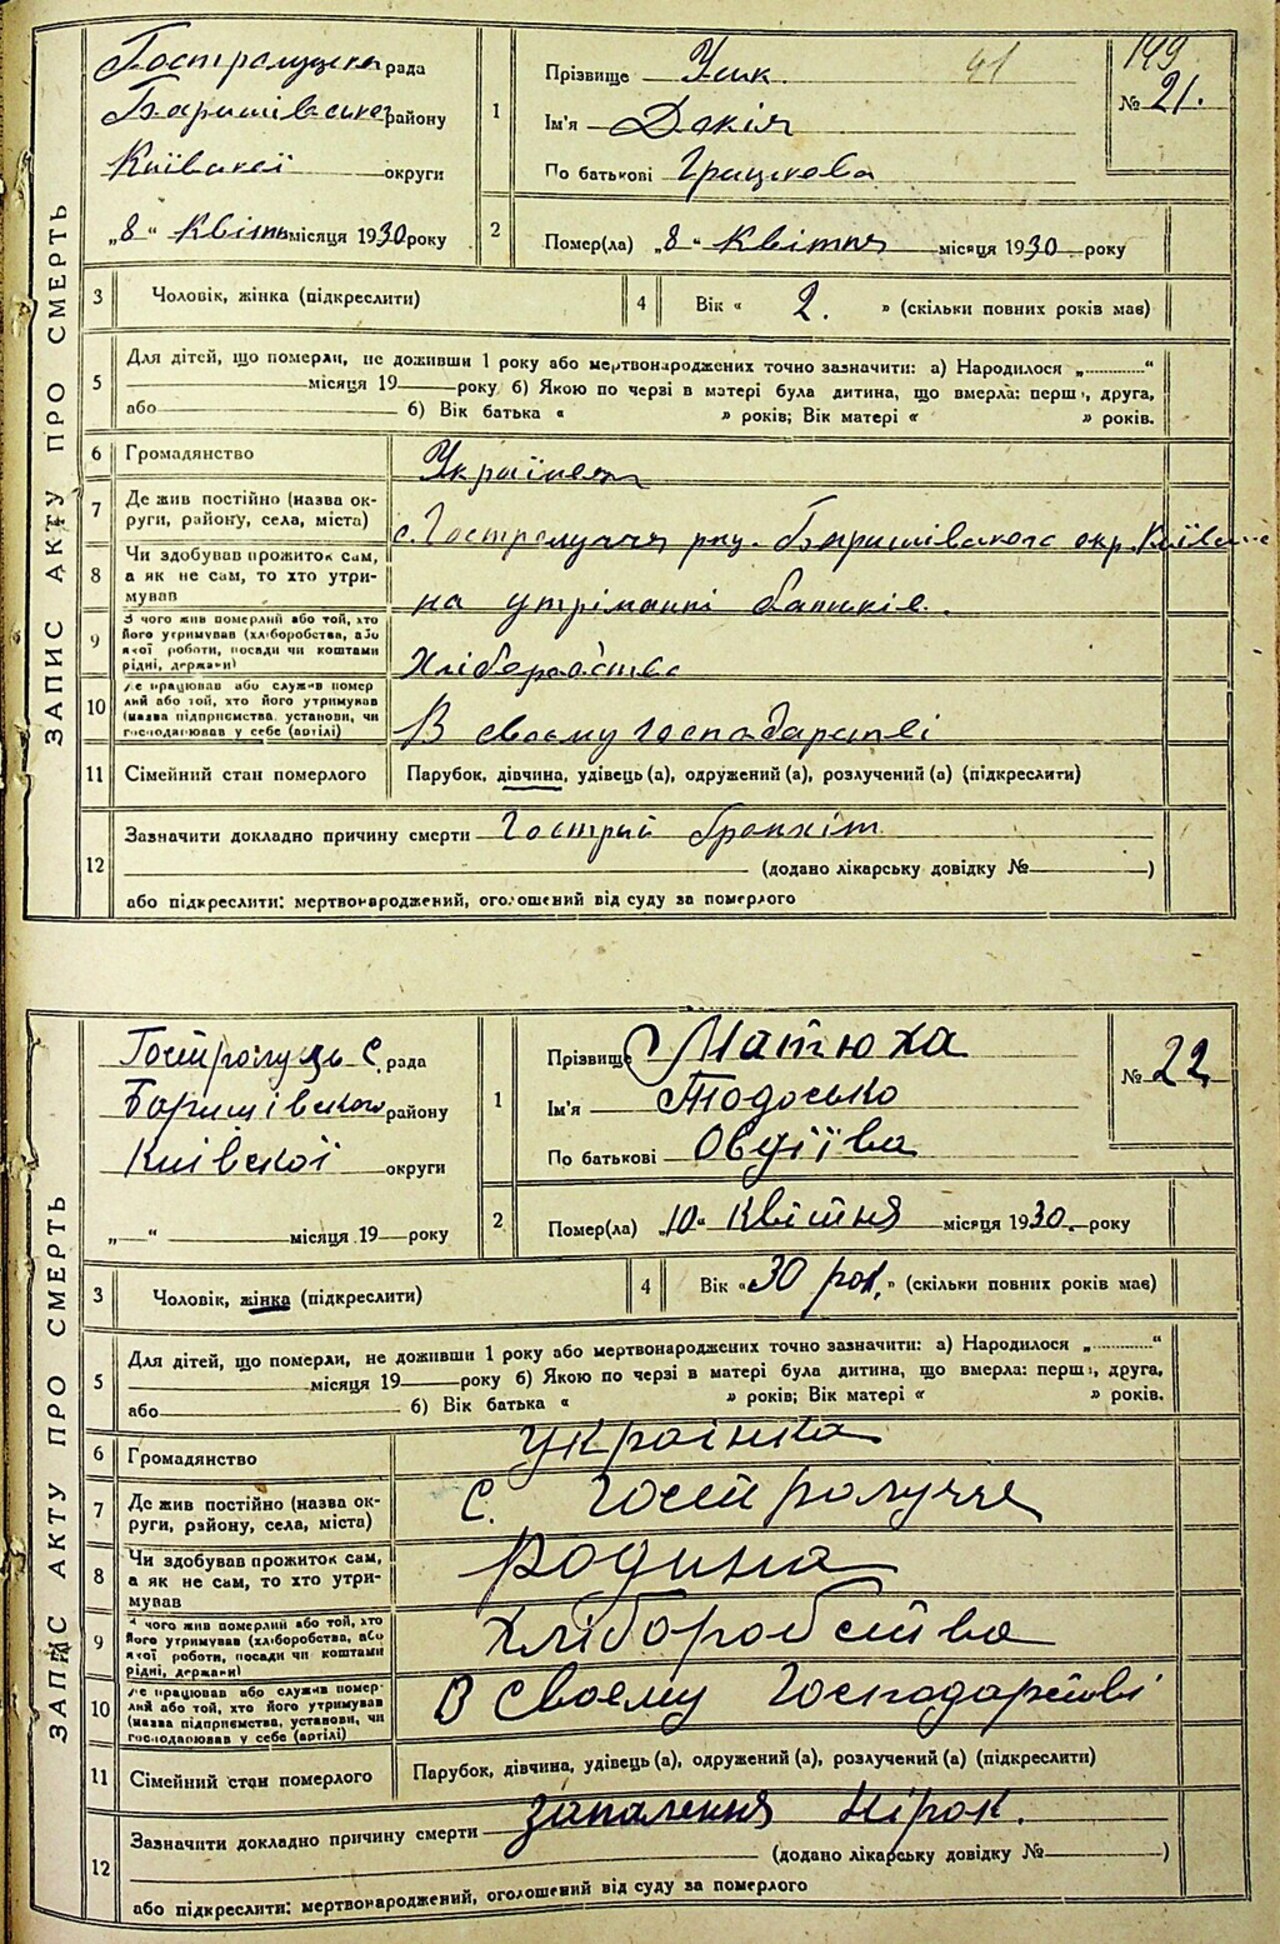 ЗАПИС АКТУ ПРО СМЕРТЬ
Гостролуцька рада
Баришівського району
Київської округи
„8“ Квітня місяця 1930 року
1
Прізвище Усик. 41
Ім'я Докія
По батькові Грицкова
149
№ 21.
2
Помер(ла) „8“ Квітня місяця 1930 року
3 Чоловік, жінка (підкреслити)
4 Вік « 2. » (скільки повних років має)
5
Для дітей, що померли, не доживши 1 року або мертвонароджених точно зазначити: а) Народилося „ “
місяця 19 року б) Якою по черзі в матері була дитина, що вмерла: перша, друга,
або 6) Вік батька « » років; Вік матері « » років.
6 Громадянство
7 Де жив постійно (назва округи, району, села, міста)
с. Гостролуччя рну. Баришівського окр. Київс
8 Чи здобував прожиток сам,
а як не сам, то хто утри-
мував
на утріманні батьків.
9 З чого жив померлий або той, хто
його утримував (хліборобства, або
якої роботи, посади чи коштами
рідні, держави)
Хліборобство
10 Де працював або служив помер
лий або той, хто його утримував
(назва підприємства, установи, чи
господарював у себе (артілі)
В своєму господарстві
11 Сімейний стан померлого
Парубок, дівчина, удівець (а), одружений (а), розлучений (а) (підкреслити)
12
Зазначити докладно причину смерти Гострий бронхіт
(додано лікарську довідку № )
або підкреслити: мертвонароджений, оголошений від суду за померлого
ЗАПИС АКТУ ПРО СМЕРТЬ
Гостролуць С. рада
Баришівского району
Київскої округи
„ “ місяця 19 року
1
Прізвище Матюха
Ім'я Тодосько
По батькові Овдіїва
№ 22
2
Помер(ла) „10“ Квітня місяця 1930. року
3 Чоловік, жінка (підкреслити)
4 Вік « 30 рок. » (скільки повних років має)
5
Для дітей, що померли, не доживши 1 року або мертвонароджених точно зазначити: а) Народилося „ “
місяця 19 року б) Якою по черзі в матері була дитина, що вмерла: перша, друга,
або 6) Вік батька « » років; Вік матері « » років.
6 Громадянство
українка
7 Де жив постійно (назва ок-
руги, району, села, міста)
с. Гостролуччя
8 Чи здобував прожиток сам,
а як не сам, то хто утри-
мував
родина
9 З чого жив померлий або той, хто
його утримував (хліборобства, або
якої роботи, посади чи коштами
рідні, держави)
хліборобства
10 Де працював або служив помер-
лий або той, хто його утримував
(назва підприємства, установи, чи
господарював у себе (артілі)
В своєму господарстві
11 Сімейний стан померлого
Парубок, дівчина, удівець (а), одружений (а), розлучений (а) (підкреслити)
12
Зазначити докладно причину смерти запалення нірок.
(додано лікарську довідку № )
або підкреслити: мертвонароджений, оголошений від суду за померлого